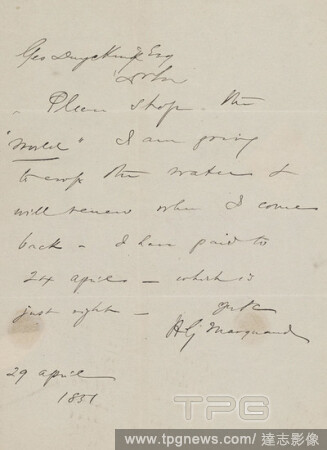 Geo Duyckinck Esq
Dr Sir
Please stop the
"World" I am going
to cross the water &
will renew when I come
back - I have paid to
24 april - which is
just right -
yrs &c
H G Marquand
29 april
1851
TPG
www.tpgnews.com / 達志影像